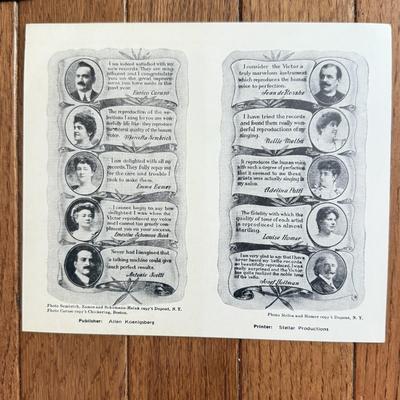 I am indeed satisfied with my
new records. They are mag-
nificent and I congratulate
you on the great improve-
ment you have made in the
past year.
Enrico Caruso
The reproduction of the se-
lections I sang for you are won-
derfully life like; they reproduce
the natural quality of the human
voice.
Marcella Sembrich
I am delighted with all my
records. They fully repay me
for the care and trouble I
took to make them.
Emma Eames
I cannot begin to say how
delighted I was when the
Victor reproduced my voice
and I cannot too greatly com-
pliment you on your success.
Ernestine Schumann Heink
Never had I imagined that
a talking machine could give
such perfect results.
Antonio Scotti
Photo Sembrich, Eames and Schumann-Heink copy't Dupont, N. Y.
Photo Caruso copy't Chickering, Boston.
Publisher: Allen Koenigsberg
I consider the Victor a
truly marvelous instrument
which reproduces the human
voice to perfection.
Jean de Reszke
I have tried the records
and found them really won-
derful reproductions of my
singing.
Nellie Melba
It reproduces the human voice
with such a degree of perfection
that it seemed to me these
artists were actually singing in
my salon.
Adelina Patti
The fidelity with which the
quality of tone of each artist
is reproduced is almost
startling.
Louise Homer
I am very glad to say that I have
never heard my 'cello records
so beautifully reproduced. I was
really surprised and the Victor
the noble tone
of the 'cello.
Josef Hollman
Photo Melba and Homer copy't Dupont, N. Y.
Printer: Stellar Productions